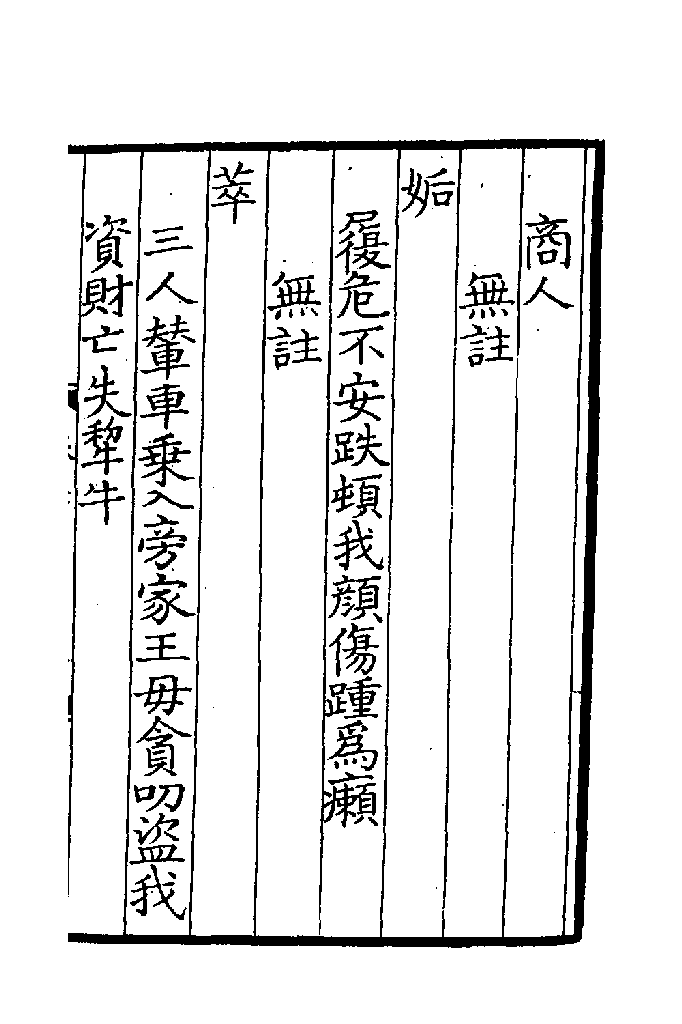 商人
無註
姤
履危不安跌頓我顔傷踵爲癩
無註
萃
三人輦車乗入旁家王毋貪叨盜我
資財亡失犂牛